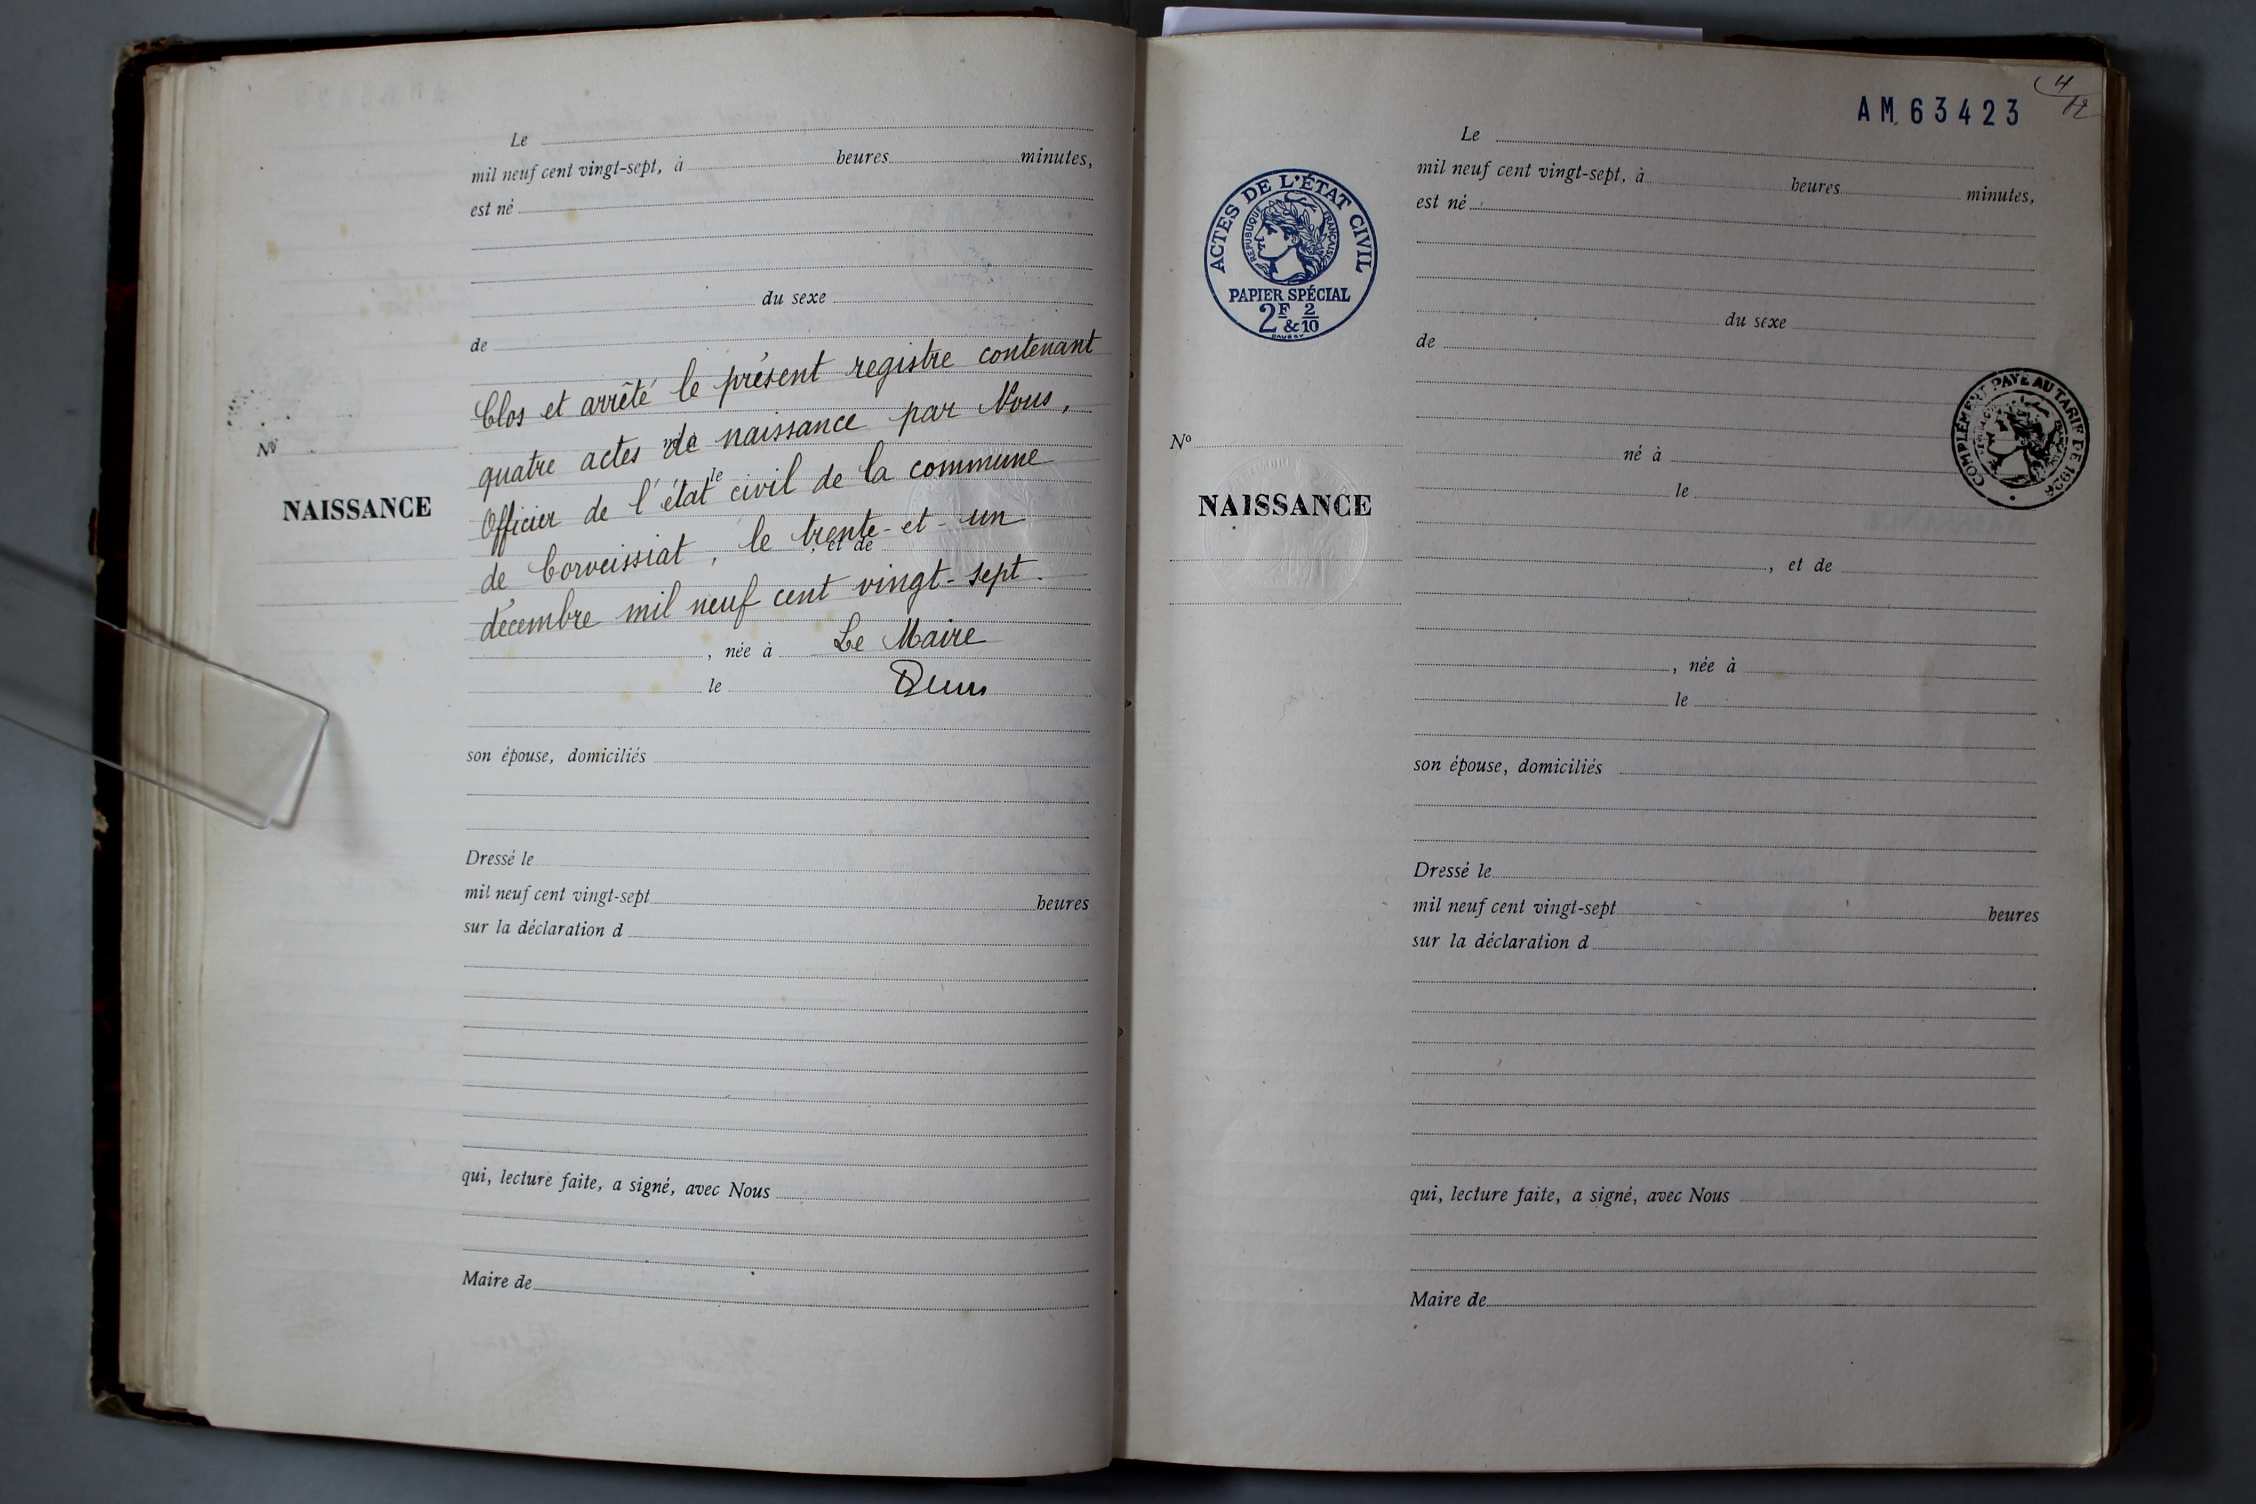 Le
mil neuf cent vingt-sept, à heures minutes,
est né
du sexe
de
Clos et arrêté le présent registre contenant
quatre actes de naissance par Nous,
Officier de l'état civil de la commune
de Corveissiat, le trente-et-un
décembre mil neuf cent vingt-sept.
Le Maire
né à
le
, et de
, née à
le
son épouse, domiciliés
Dressé le
mil neuf cent vingt-sept heures
sur la déclaration d
qui, lecture faite, a signé, avec Nous
Maire de
No
NAISSANCE
AM 63423
4/12
Le
mil neuf cent vingt-sept, à heures minutes,
est né
du sexe
de
né à
le
, et de
, née à
le
son épouse, domiciliés
Dressé le
mil neuf cent vingt-sept heures
sur la déclaration d
qui, lecture faite, a signé, avec Nous
Maire de
ACTES DE L'ÉTAT CIVIL
RÉPUBLIQUE FRANÇAISE
PAPIER SPÉCIAL
2F & 2/10
No
NAISSANCE
COMPLÉMENT PAYÉ AU TARIF DE 1926